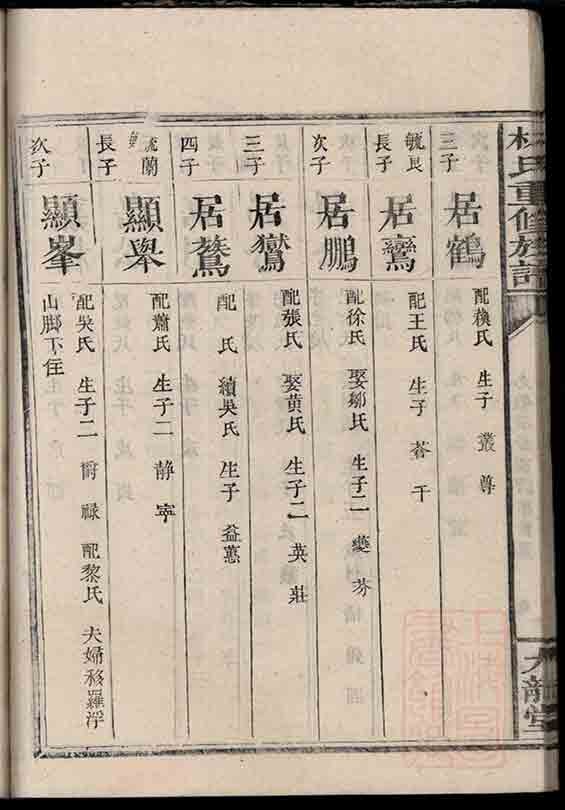 氏重修族譜
三子
居鶴
配賴氏 生子 叢尊
毓良
長子
居鸞
配王氏 生子 荅干
次子
居鵬
配徐氏 娶鄒氏 生子二 燮芬
三子
居鸑
配張氏 娶黃氏 生子二 英莊
四子
居鷟
配 氏 續吳氏 生子 益蕙
毓蘭
長子
顯舉
配蕭氏 生子二 静寧
次子
顯峯
配吳氏 生子二 爵祿 配黎氏 夫婦移羅浮
山脚下住
龍堂